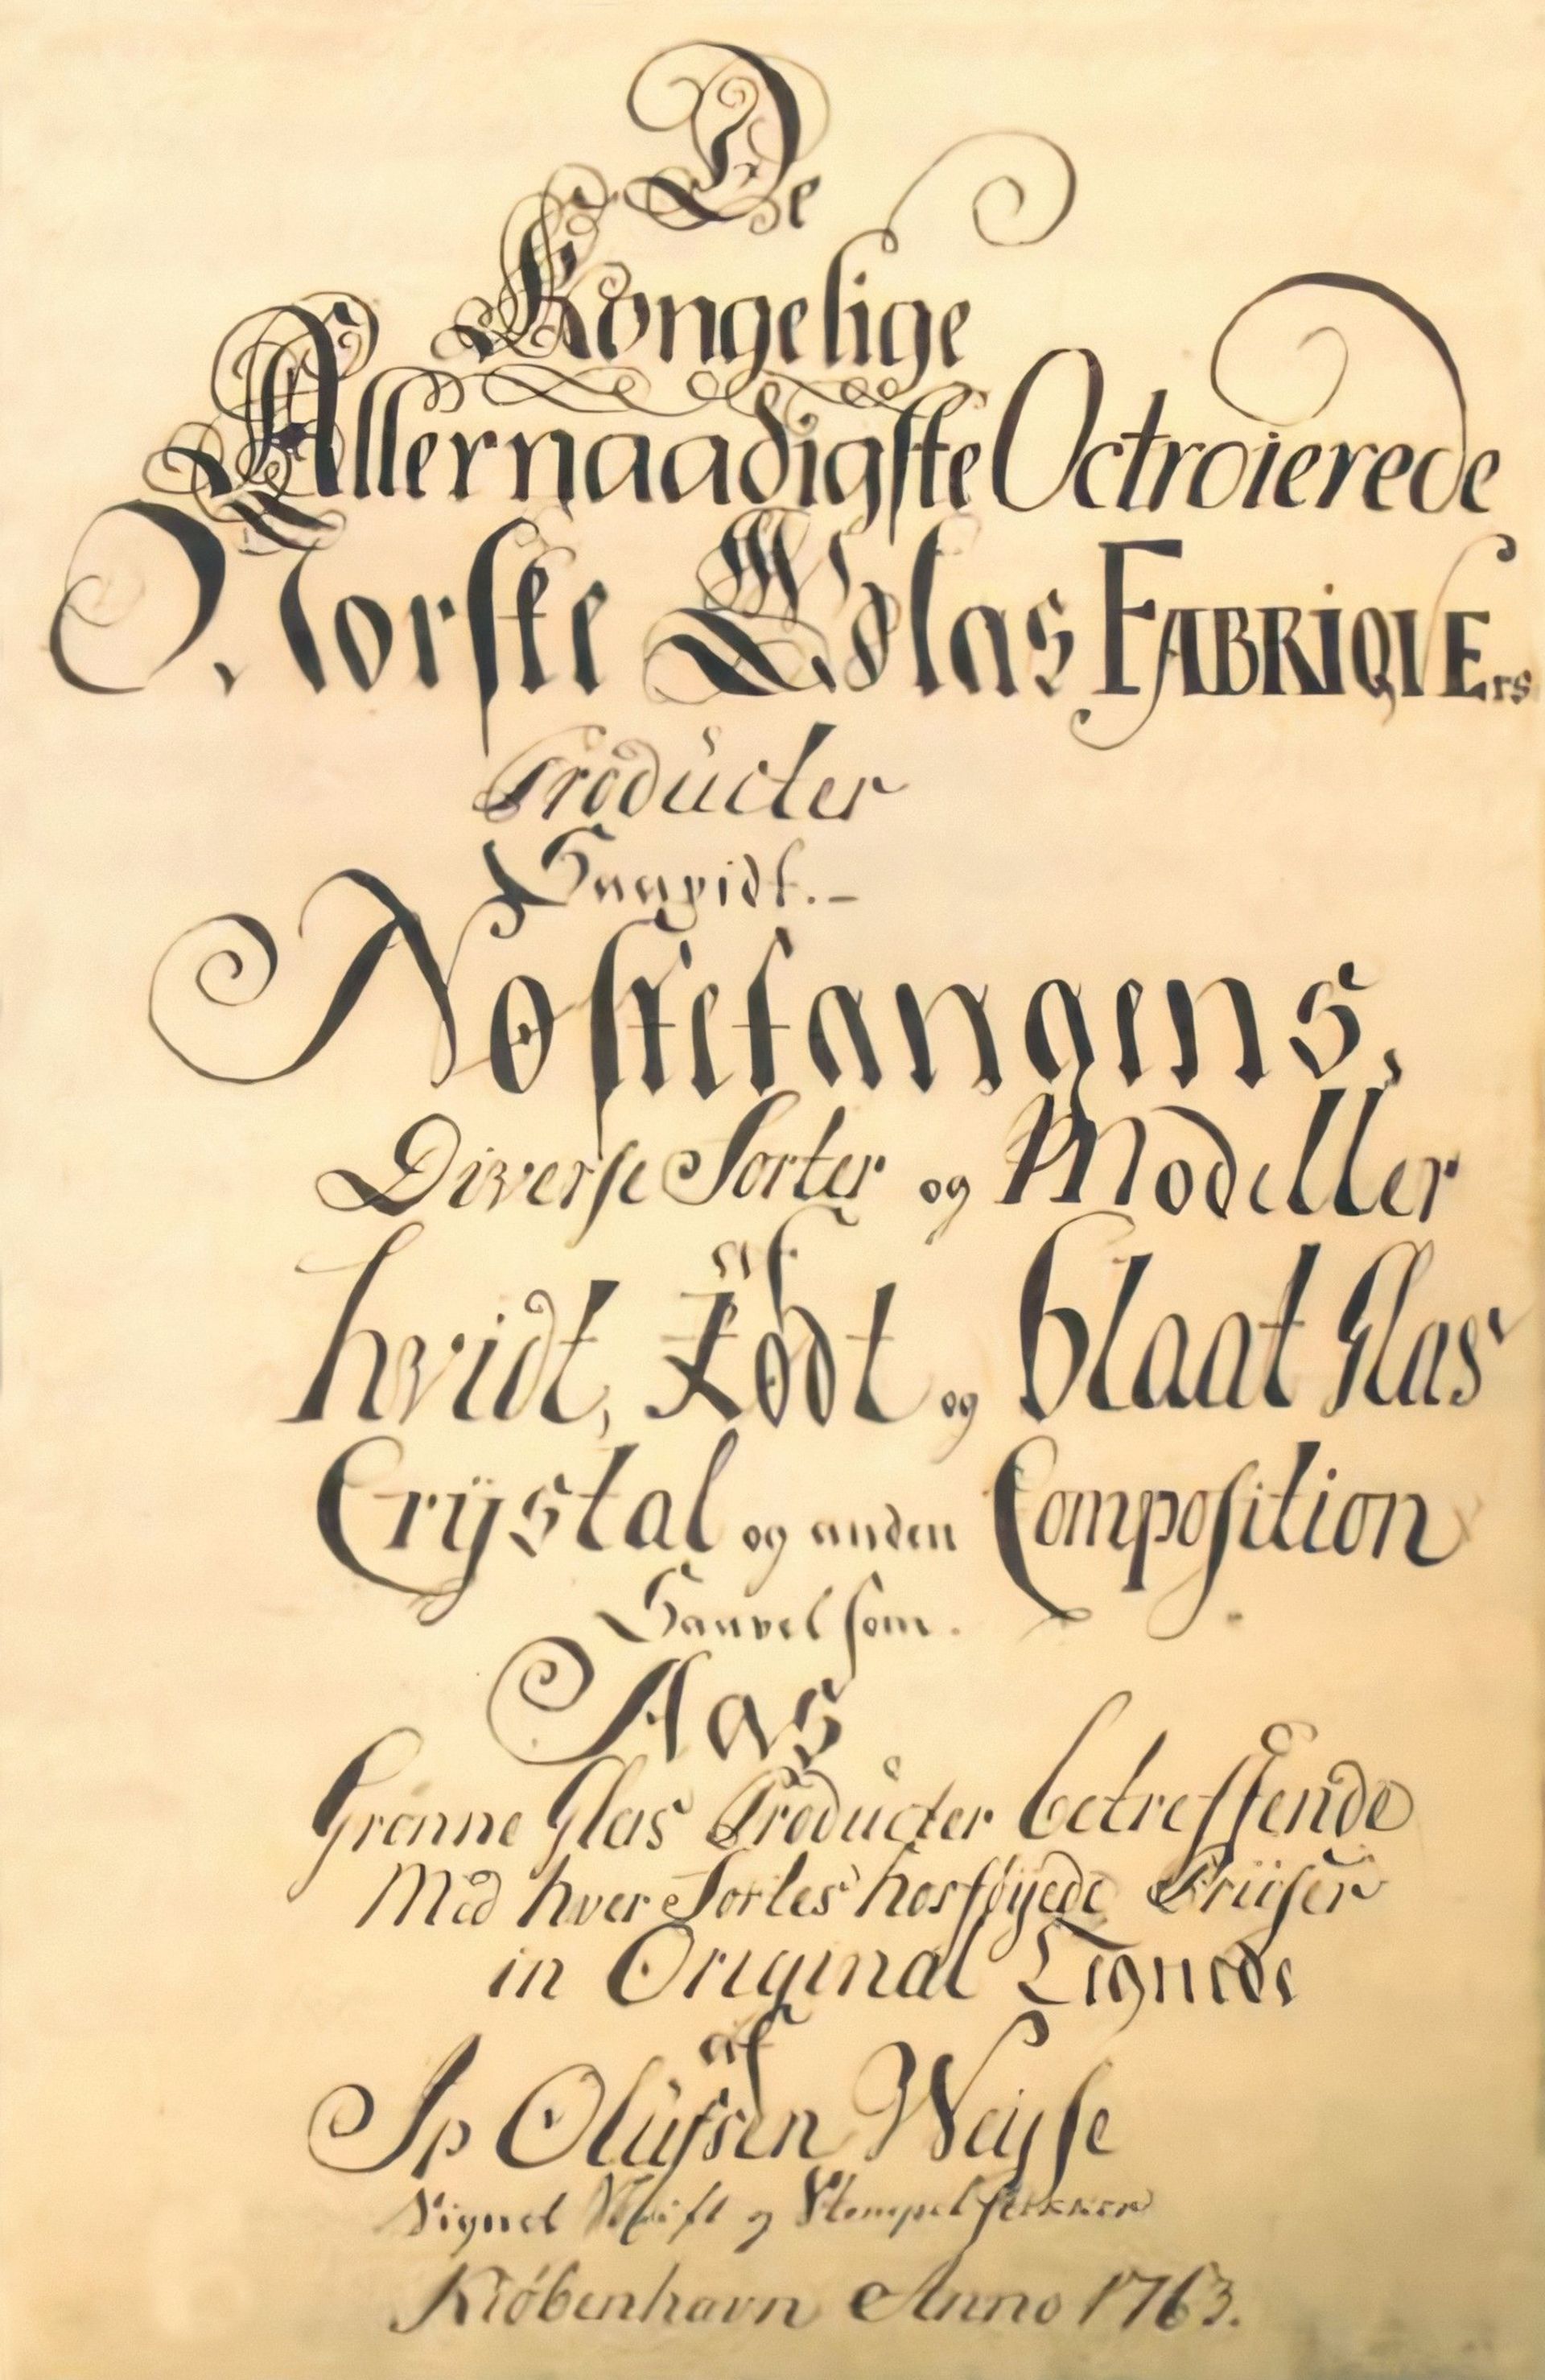 De
Kongelige
Allernaadigste Octroierede
Norske Glas FABRIQVE rs
Producter
Saavidt. –
Nøstetangens,
Diverse Sorter og Modeller
af
hvidt, Rødt og blaat Glas
Crÿstal og anden Composition
Saavel som.
Aas
Grønne Glas Producter betreffende
Med hver Sortes hosføÿede Priiser
in Original Tignede
af
Ip Olüfsen Weÿse
Signet og Stempelstekker
Kiöbenhavn Anno 1763.